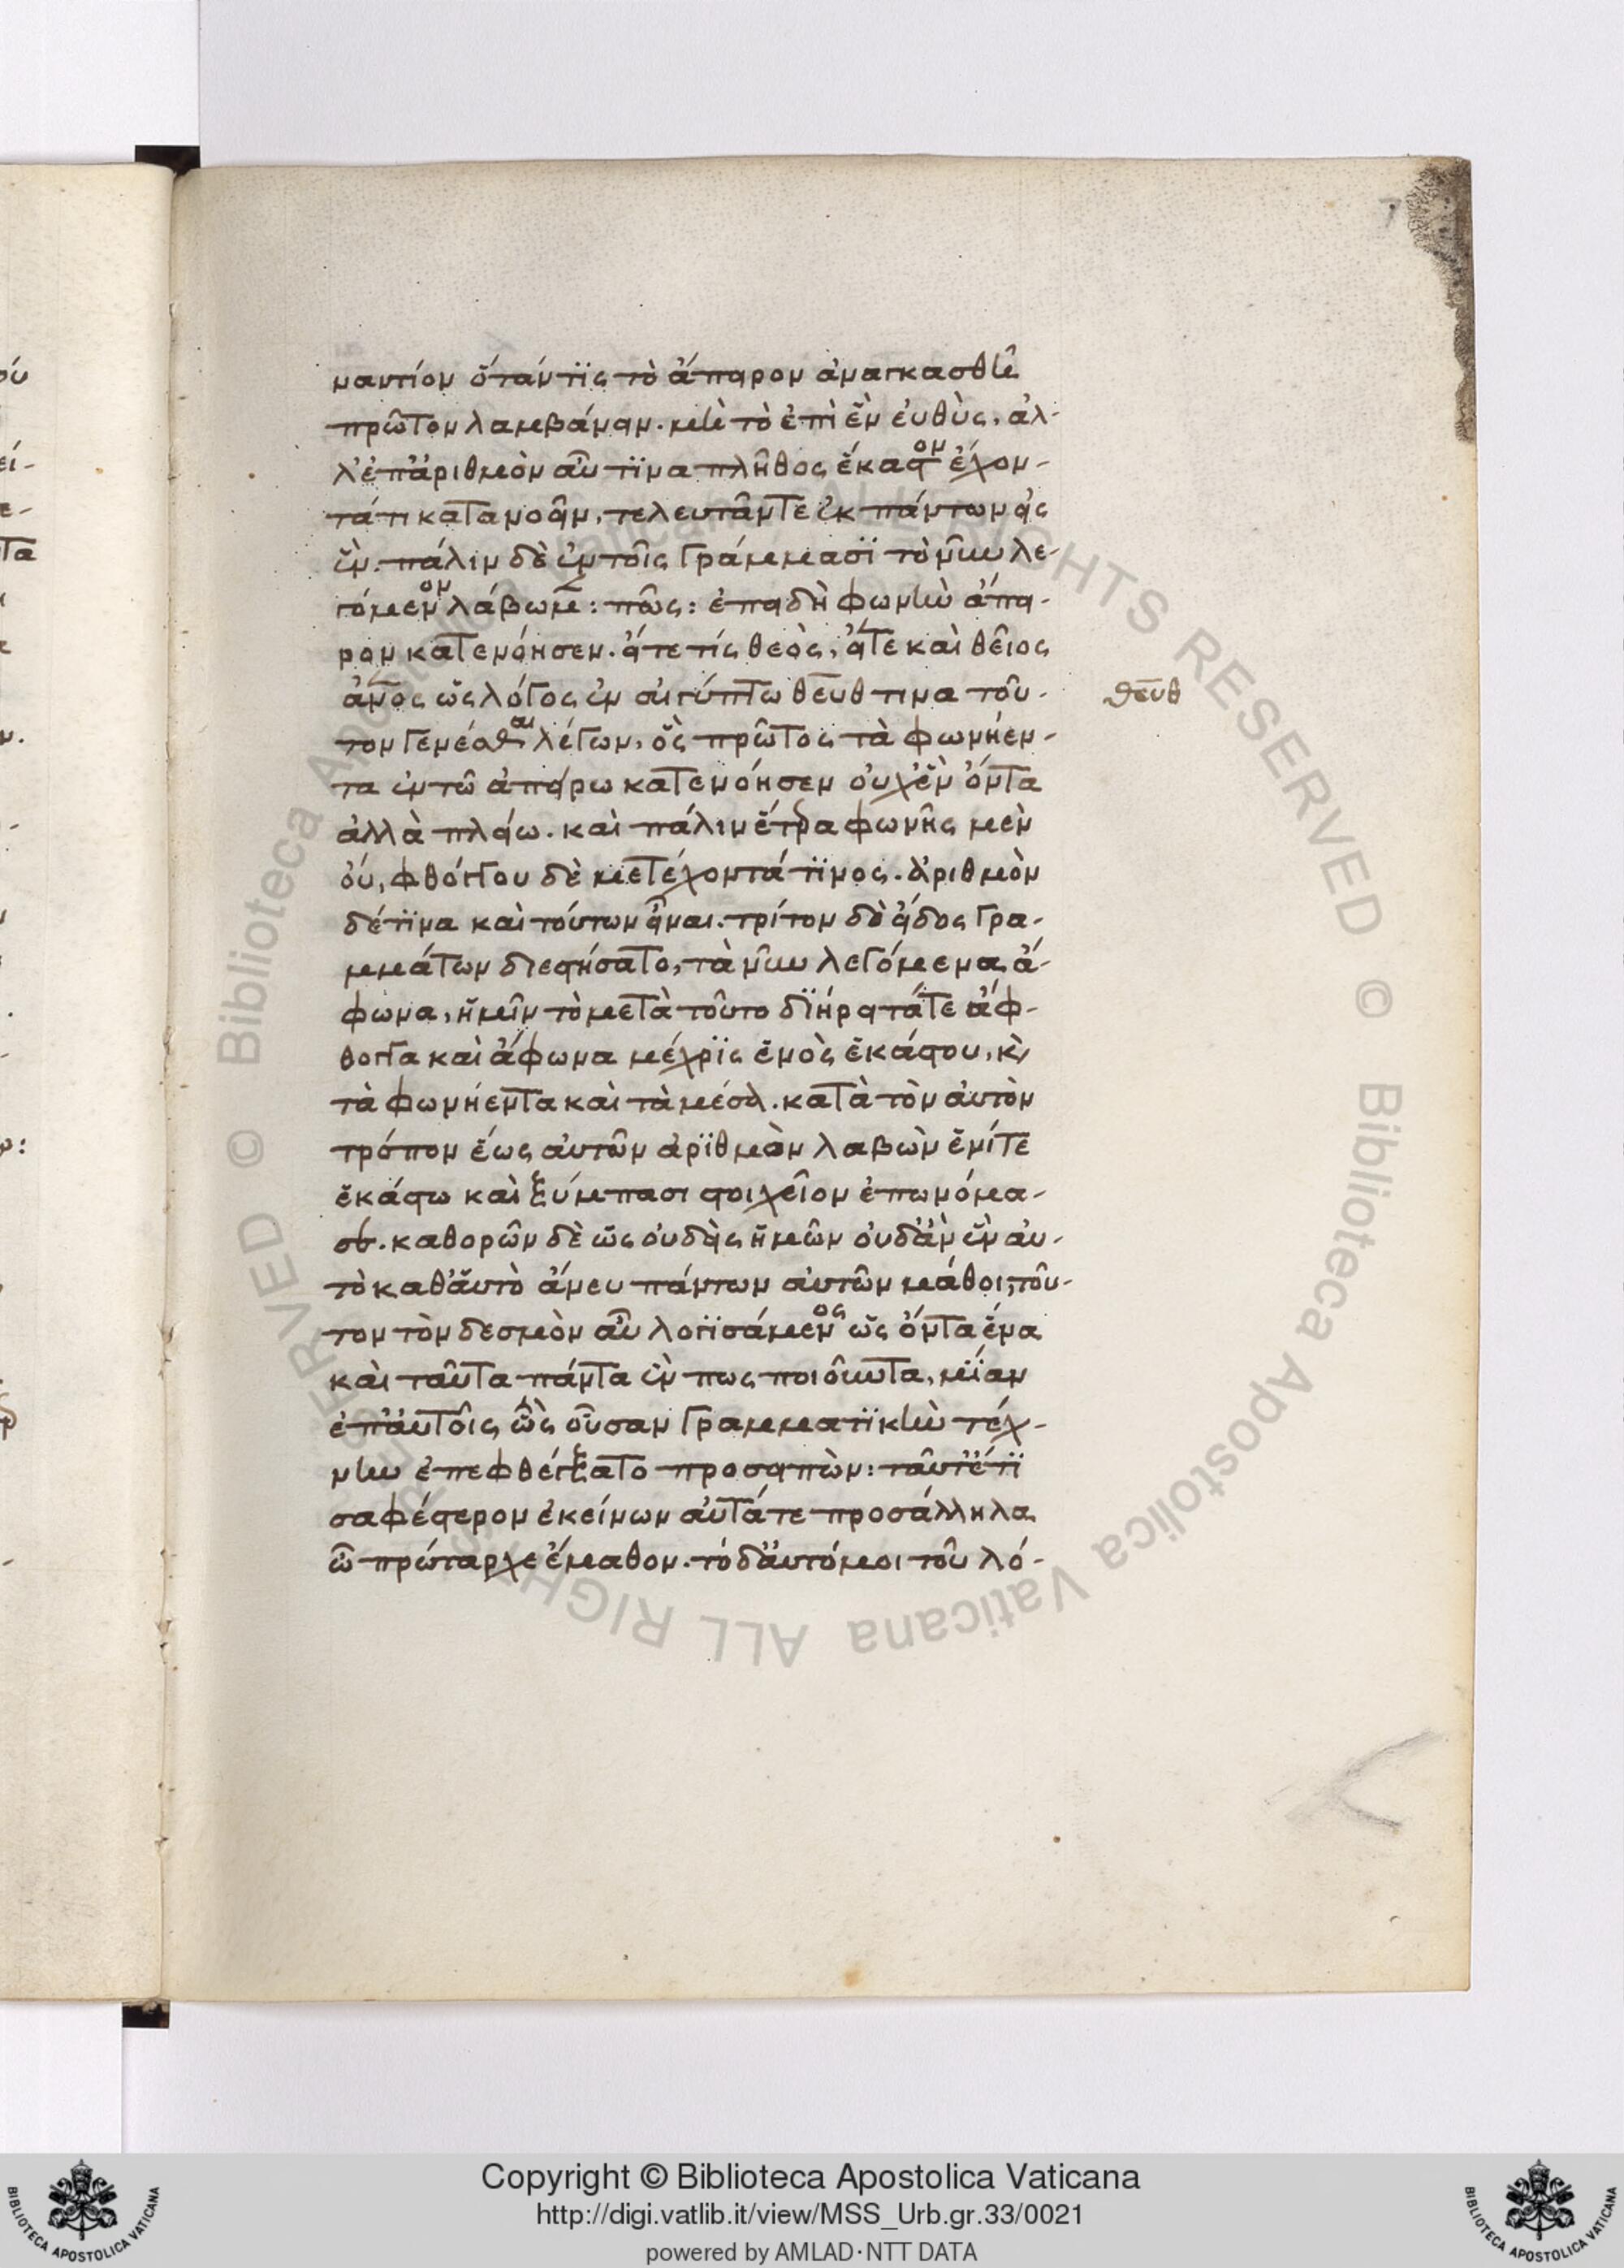 ναντίον ὅτάν τϊς τὸ ἄπειρον ἀναγκασθῆ
πρῶτον λαμβάνειν. μὴ τὸ ἐπὶ ἓν ἐυθὺς, ἀλ-
λ' ἐπ' ἀριθμὸν αὖ τϊνα πλῆθος ἕκαστον ἔχον-
τά τι κατανοεῖν, τελευτᾶν τε ἐκ πάντων εἰς
ἕν. πάλιν δὲ ἐν τοῖς γράμμασϊ τὸ νῦν λε-
γόμενον λάβωμεν: πῶς: ἐπειδὴ φωνὴν ἄπει-
ρον κατενόησεν. εἴτε τίς θεὸς, εἴτε καὶ θεῖος
ἄνος ὡς λόγος ἐν αἰγύπτω θεῦθ τινα τοῦ-
τον γενέσθαι λέγων, ὃς πρῶτος τὰ φωνήεν-
τα ἐν τῶ ἀπείρω κατενόησεν οὐχ ἓν ὄντα
ἀλλὰ πλείω. καὶ πάλιν ἕτερα φωνῆς μὲν
οὐ, φθόγγου δὲ μετέχοντά τϊνος. ἀριθμὸν
δέ τϊνα καὶ τούτων εἶναι. τρίτον δὲ εἶδος γρα-
μμάτων διεστήσατο, τὰ νῦν λεγόμενα ἄ-
φωνα, ἡμῖν τὸ μετὰ τοῦτο δϊήρει τά τε ἄφ-
θογγα καὶ ἄφωνα μέχρϊς ἑνὸς ἑκάστου, κὶ
τὰ φωνήεντα καὶ τὰ μέσα. κατὰ τὸν αὐτὸν
τρόπον ἕως αὐτῶν ἀρϊθμὸν λαβὼν ἑνί τε
ἑκάστω καὶ ξύμπασι στοιχεῖον ἐπωνόμα-
σε. καθορῶν δὲ ὡς οὐδεὶς ἡμῶν οὐδ' ἂν ἓν αὐ-
τὸ καθ' ἁυτὸ ἄνευ πάντων αὐτῶν μάθοι, τοῦ-
τον τὸν δεσμὸν αὖ λογϊσάμενος ὡς ὄντα ἕνα
καὶ ταῦτα πάντα ἕν πως ποιοῦντα, μϊαν
ἐπ' ἀυτοῖς ὡς οὖσαν γραμματϊκὴν τέχ-
νην ἐπεφθέγξατο προσειπὼν: ταῦτ' ἔτϊ
σαφέστερον ἐκείνων αὐτά τε προσάλληλα
ὦ πρώταρχε ἔμαθον. τό δ' ἀυτό μοι τοῦ λό-
θεῦθ
7
Copyright © Biblioteca Apostolica Vaticana
http://digi.vatlib.it/view/MSS_Urb.gr.33/0021
powered by AMLAD·NTT DATA